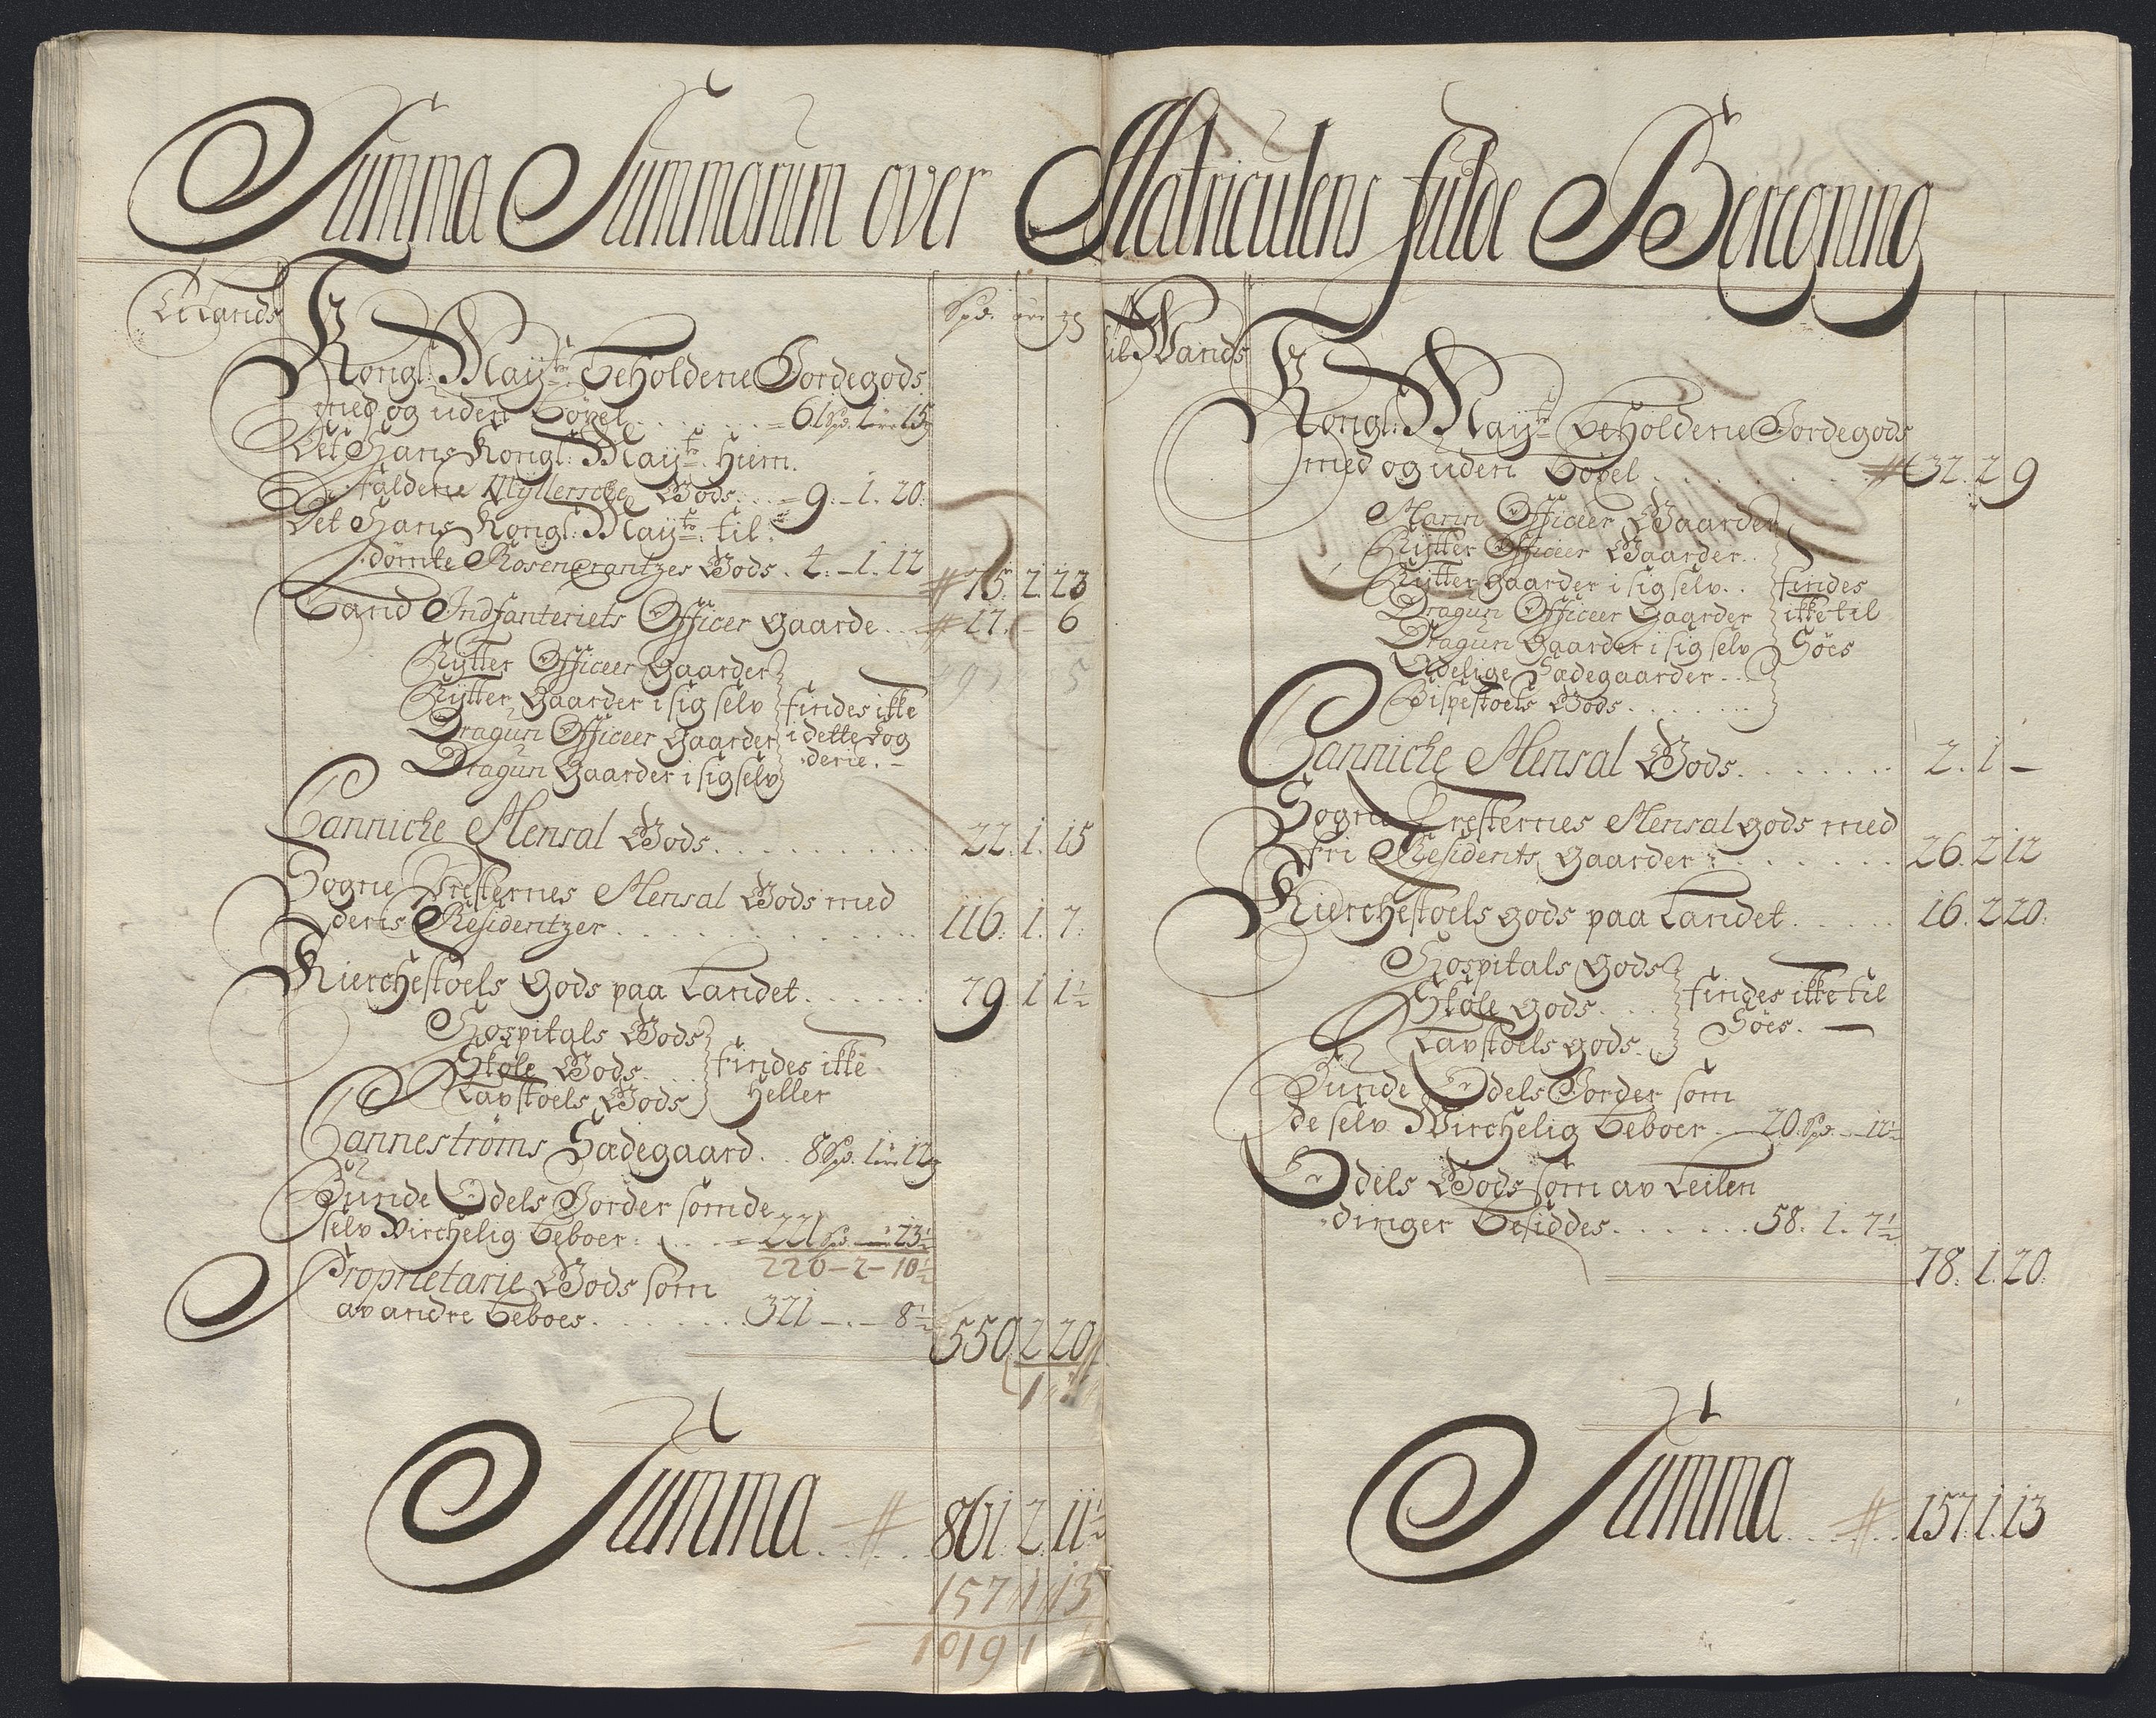 Summa Summarum over Matriculens fulde Beregning
Til Lands
Spd. ører mk
Kongl: Mayts: Beholdene Jordegods
med og uden bøxel . . . . . = 61 Spd. 1 øre 15
Det Hans Kongl: Mayts. Hiem.
faldene Myllerske Gods . . . = 9. — 1. 20.
Det Hans Kongl: Mayts. til.
dømte Rosencrantzes Gods . 4. — 1. 12
75. 2. 23
Land Indfanteriets Officer gaarde . . 17. — 6
Rytter Officeer Gaarder
Rytter Gaarder i sig selv
Dragun Officeer Gaarder
Dragun Gaarder i sig selv
findes ikke
i dette fog
derie. —
Cannicke Mensal Gods . . . . . . . . . 22. 1. 15
Sogne Presternes Mensal Gods med
deris Residentzer . . . . . . . . . . 116. 1. 7.
Kierchestoels Gods paa Landet . . . . . . 79. 1 1½
Hospitals Gods
Skole Gods . . .
Lavstoels Gods
findes ikke
heller
Canneströms Sædegaard . . 8 Spd. 1 øre 12
Bunde Odels Jorder som de
selv Virchelig beboer . . . = 221 Spd. — 23½
220 – 2 – 10½
Proprietarie Gods som
av andre beboes . . . . . . 321 — . — 8½
550. 2 20
Summa . . . . 861. 2. 11½
157 1 13
1019 1
Til Vands
Kongl: Mayts Beholdene Jordegods
med og uden bøxel . . . . . . . 32. 2 9
Marin Officeer Gaarder
Rytter Officeer Gaarder . .
Rytter gaarder i sig selv . .
Dragun Officeer Gaarder
Dragun Gaarder i sig selv
Adelige Sædegaarder . . .
Bispestoels Gods . . . . . .
findes
ikke til
Søes
Cannicke Mensal Gods . . . . . . . 2. 1 —
Sogne Presternes Mensal gods med
fri Residents gaarder . . . . . . . 26. 2 12
Kierchestoels gods paa Landet . . . . . 16. 2 20.
Hospitals Gods
Skole gods . . .
Lavstoels gods .
findes ikke til
Søes. —
Bunde Odels Jorder som
de selv Virchelig beboer — 20. Spd. — 12½
Odels Gods som av Leilen
dinger besiddes . . . . . . 58. 1. 7½
78. 1. 20.
Summa . . . . 157. 1. 13